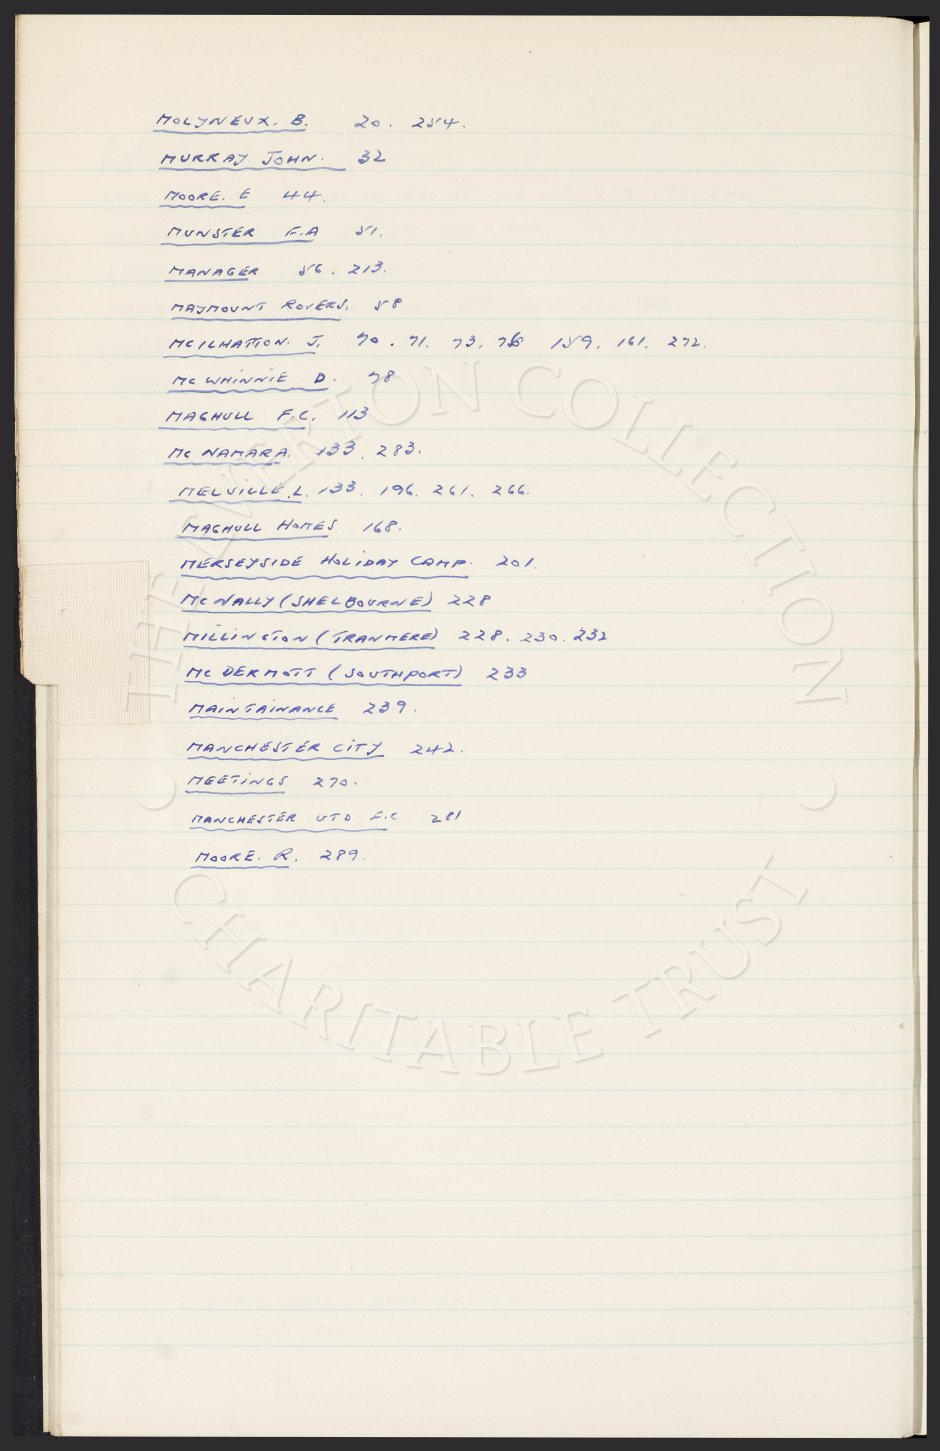 MOLYNEUX. B. 20. 254.
MURRAY JOHN. 32
MOORE. E 44.
MUNSTER F.A 51.
MANAGER 56. 213.
MAYMOUNT ROVERS. 58
MCILHATTON. J. 70. 71. 73. 76 159. 161. 272.
MC WHINNIE D. 78
MAGHULL F.C. 113
MC NAMARA. 133. 283.
MELVILLE. L. 133. 196. 261. 266.
MAGHULL HOMES 168.
MERSEYSIDE HOLIDAY CAMP. 201.
MC NALLY (SHELBOURNE) 228
MILLINGTON (TRANMERE) 228. 230. 232
MC DERMOTT (SOUTHPORT) 233
MAINTAINANCE 239.
MANCHESTER CITY 242.
MEETINGS 270.
MANCHESTER UTD F.C 281
MOORE. R. 289.
THE EVERTON COLLECTION
CHARITABLE TRUST